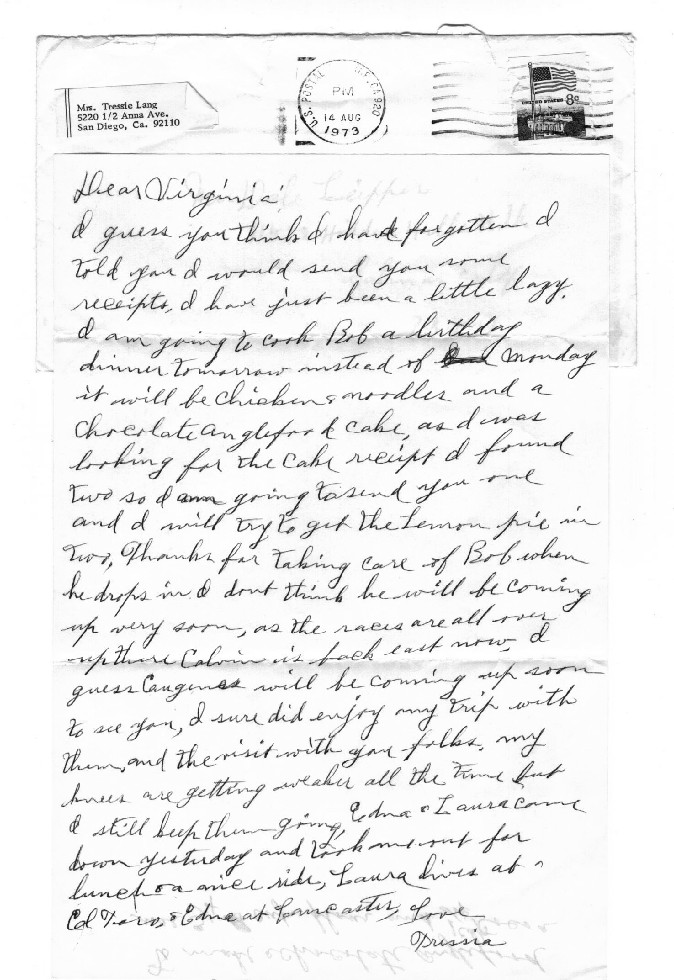 Mrs. Tressie Lang
5220 1/2 Anna Ave.
San Diego, Ca. 92110
U.S. POSTAL CA 920
PM
14 AUG
1973
UNITED STATES 8c
Dear Virginia,
I guess you think I have forgotten I
told you I would send you some
receipts, I have just been a little lazy.
I am going to cook Bob a birthday
dinner tomorrow instead of monday
it will be chicken & noodles and a
chocolate anglefood cake, as I was
looking for the cake receipt I found
two so I am going to send you one
and I will try to get the Lemon pie in
two, Thanks for taking care of Bob when
he drops in I dont think he will be coming
up very soon, as the races are all over
up there Calvin is back east now, I
guess will be coming up soon
to see you, I sure did enjoy my trip with
them, and the visit with you folks, my
knees are getting weaker all the time but
I still keep them going, Edna & Laura came
down yesterday and took me out for
lunch & a nice ride, Laura lives at
El Toro, & Edna at Lancaster, Love
Tressia